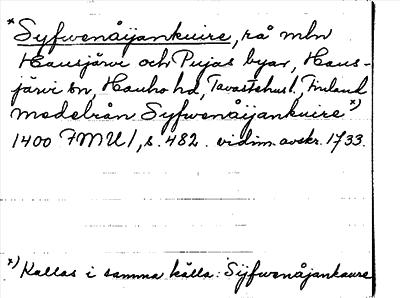 *Syfwenåijankuire, rå mln
Hausjärvi och Pujas byar, Haus-
järvi sn, Hauho hd, Tavastehus l., Finland
medelrån Syfwenåijankuire *)
1400 FMU 1, s. 482. vidim. avskr. 1733.
*) Kallas i samma källa: Sÿfwenåjankaure